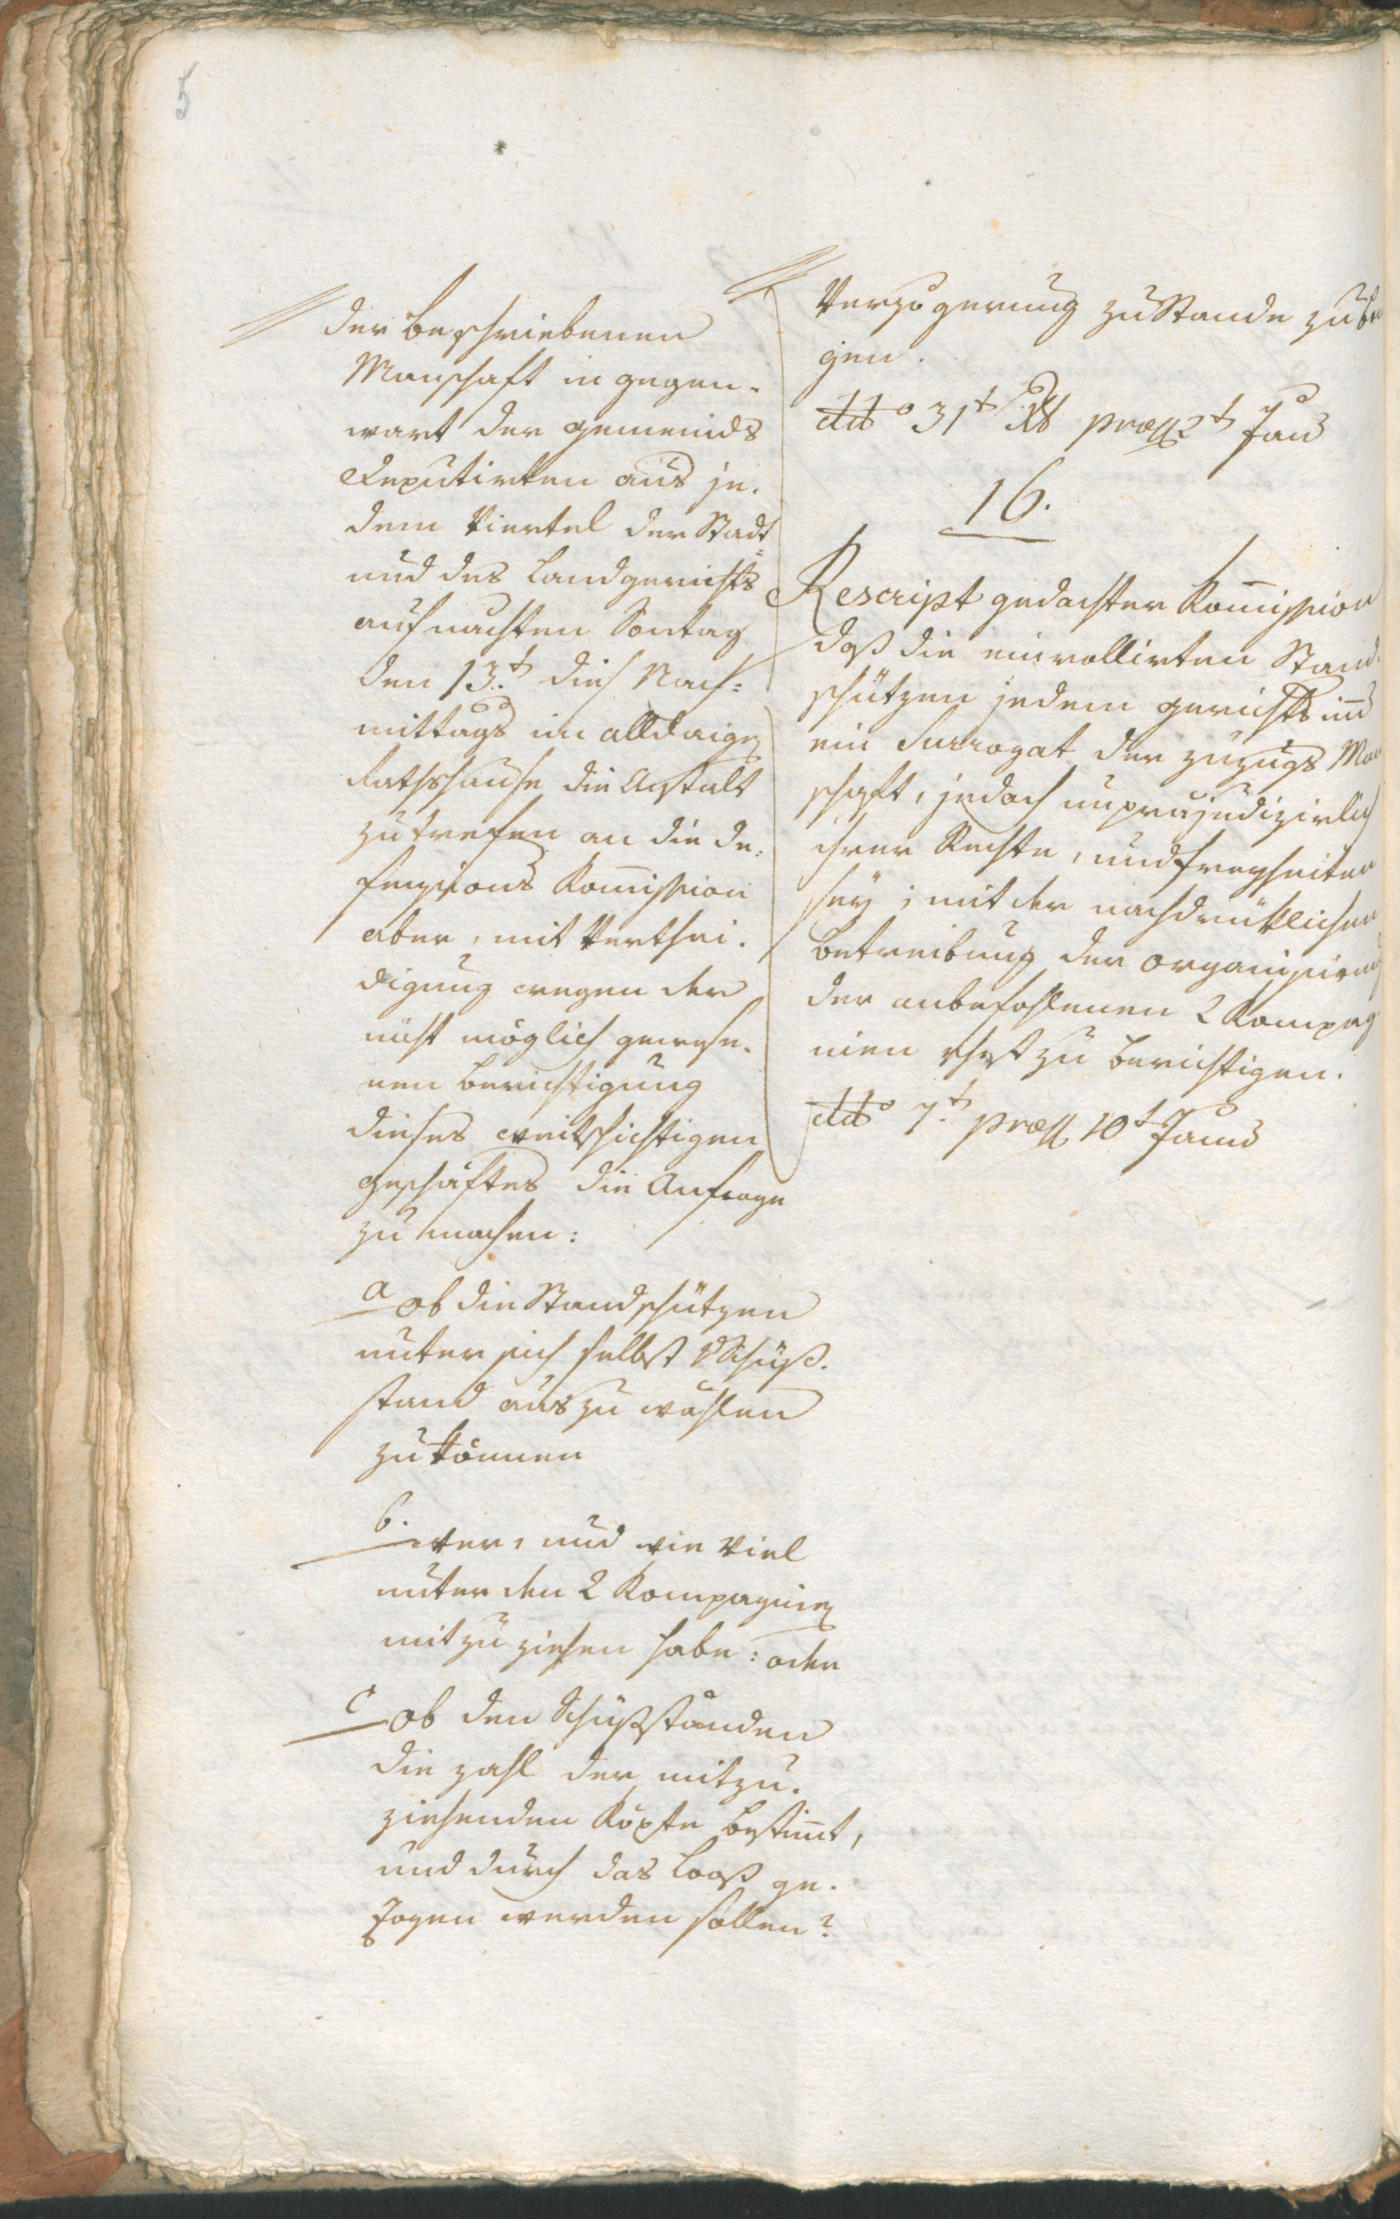 5
der beschriebenen
Manschaft in gegen-
wart der gemeinds
Deputirten aus je-
dem Viertel der Stadt
und des Landgerichts
auf nachsten Sontag
den 13.t dies Nach-
mittags im alldaigen
Rathshause die Anstalt
zu trefen an die de-
fensions Kom̄ission
aber, mit Verthei-
digung wegen der
nicht möglich gewese-
nen berichtigung
dieses weitschichtigen
geschäftes die Anfrage
zu machen:
a ob die Standschützen
unter sich selbst
stand aus zu wählen
zu können
b. wer, und wie viel
unter den 2 Kompagnien
mitzuziehen habe: oder
c ob den Schüßständen
die zahl der mitzu-
ziehenden Köpfe bestim̄t,
und durch das Looß ge-
zogen werden sollen?
Verzögerung zu Stande zu
gen.
ddto 31t Xb præs. 2t Jan
16.
Rescript gedachter Kom̄ission
daß die einrollirten Stand
schützen jedem gerichts
ein Surrogat der zuzugs Man
schaft, jedoch unprejudizirlich
ihrer Rechte, und freyheiten
sey; mit der nachdrüklichen
betreibung der organisirung
der anbefohlenen 2 Kompag
nien ehest zu berichtigen.
ddto 7.t præs 10t Jan